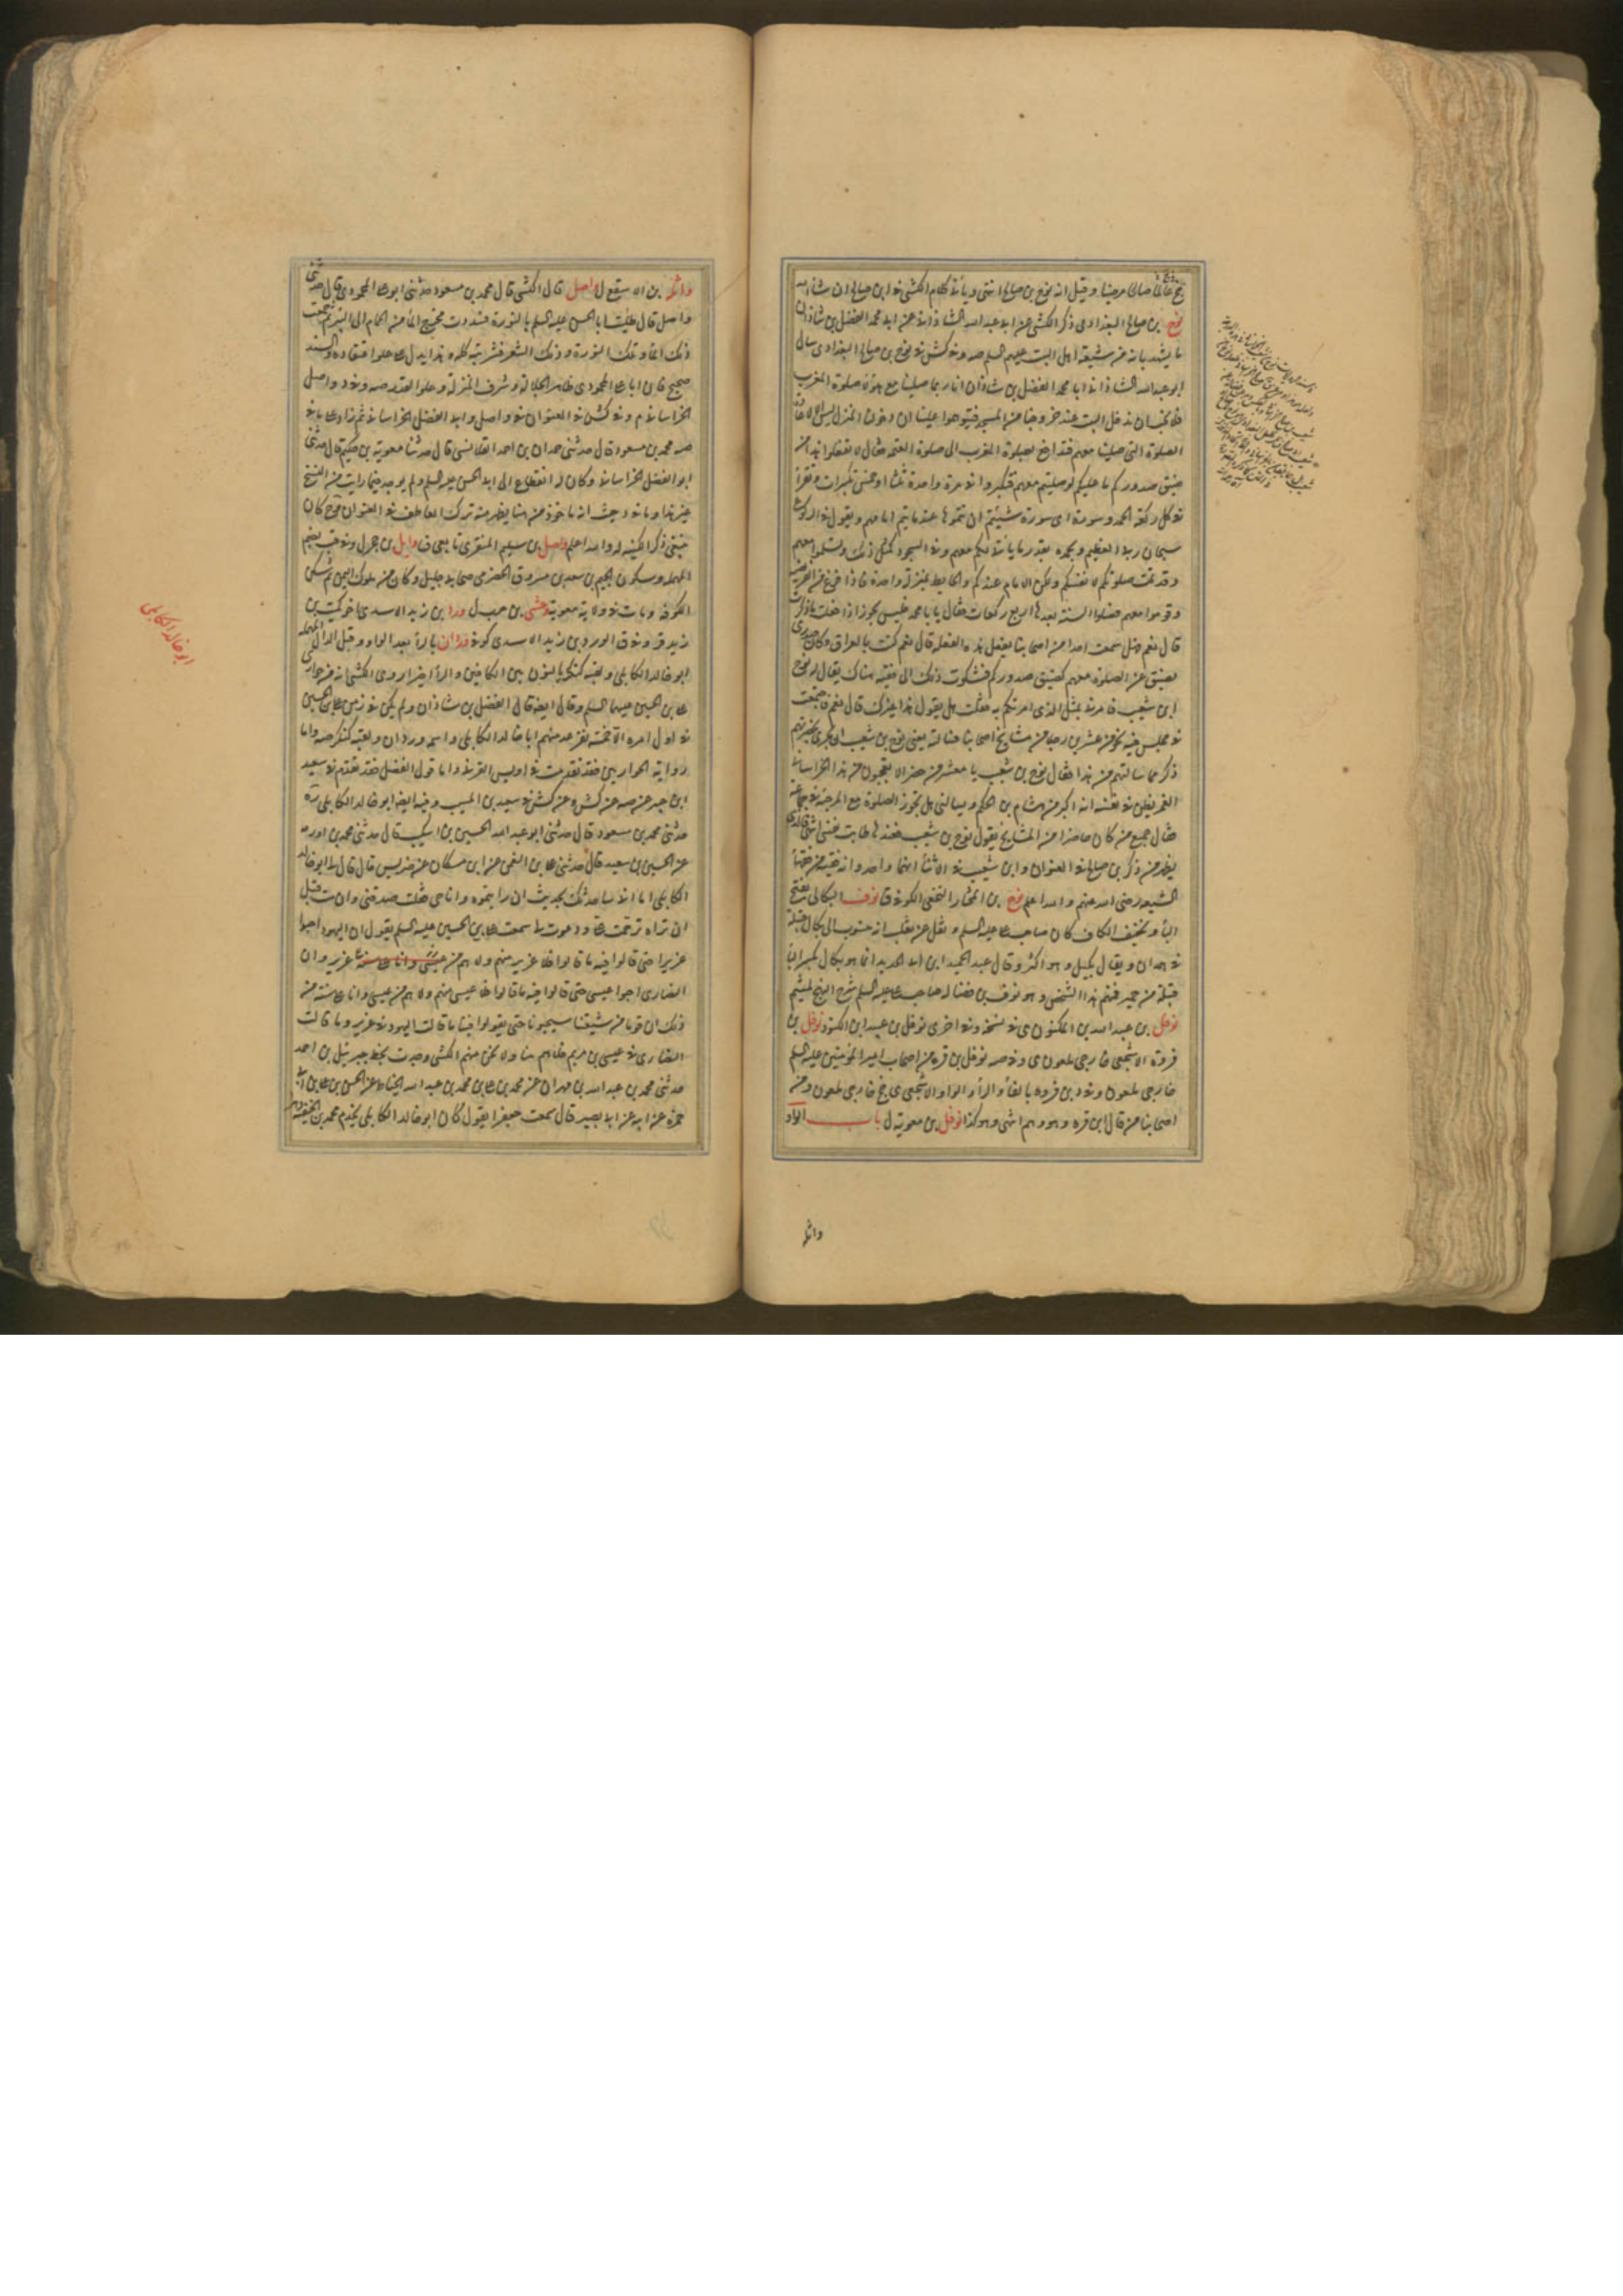 نوح بن صالح البغدادى ذكر الكشى عن ابى عبد الله الشاذانى عن ابى محمد الفضل بن شاذان
ما يشهد بانه من شيعة اهل البيت عليهم السلم صه وفى كش فى نوح بن صالح البغدادى سال
ابو عبد الله الشاذانى ابا محمد الفضل بن شاذان انا ربما صلينا مع هؤلاء صلوة المغرب
فلا نحب ان ندخل البيت عند خروجنا من المسجد فيتوهموا علينا ان دخولنا المنزل ليس الا لاعادة
الصلوة التى صلينا معهم فنتدافع بصلوة المغرب الى صلوة العتمة فقال لا تفعلوا هذا من
ضيق صدوركم ما عليكم لو صليتم معهم فتكبروا فى مرة واحدة ثلثا او خمس تكبيرات وتقرؤا
فى كل ركعة الحمد وسورة اى سورة شئتم ان تتموها عند ما يتم امامهم ويقول فى الركوع
سبحان ربى العظيم وبحمده بقدر ما يتأتى لكم معهم وفى السجود كمثل ذلك وتسلموا معهم
وقد تمت صلوتكم لانفسكم وليكن الامام عندكم والحايط بمنزلة واحدة فاذا فرغ من الفريضة
وقوموا معهم فصلوا السنة بعدها اربع ركعات فقال يابا محمد فليس يجوز اذا فعلت ما ذكرت
قال نعم فهل سمعت احدا من اصحابنا يفعل هذه الفعلة قال نعم كنت بالعراق وكان صدرى
يضيق عن الصلوة معهم كضيق صدوركم فشكوت ذلك الى فقيه هناك يقال له نوح
ابن شعيب فامرنى بمثل الذى امرتكم به فقلت هل يقول هذا غيرك قال نعم فاجتمعت
فى مجلس فيه نحو من عشرين رجلا من مشايخ اصحابنا فسالته يعنى نوح بن شعيب ان يجرى بحضرتهم
ذكر مما سالته من هذا فقال نوح بن شعيب يا معشر من حضر الا تعجبون من هذا الخراسانى
الغمر يظن فى نفسه انه اكبر من هشام بن الحكم ويسالنى هل تجوز الصلوة مع المرجئة فى جماعتهم
فقال جميع من كان حاضرا من المشايخ بقول نوح بن شعيب فعندها طابت نفسى
يظهر من ذكر بن صالح فى العنوان وابن شعيب فى الاثناء انهما واحد وانه فقيه من فقهاء
الشيعة رضى الله عنهم والله اعلم نوح بن المختار النخعى الكوفى ق نوف البكالى بفتح
الباء وتخفيف الكاف كان صاحب على عليه السلم ونقل عن ثعلب انه منسوب الى بكال قبيلة
فى همدان ويقال بكيل وهو اكثر وقال عبد الحميد ابن ابى الحديد انما هو بكال بكسر الباء
قبيلة من حمير فمنهم هذا الشخص وهو نوف بن فضاله صاحب على عليه السلم شرح النهج لميثم
نوفل بن عبد الله بن المكنون ى فى نسخة وفى اخرى نوفل بن عبيد ابن المكنون نوفل بن
فروة الاشجعى خارجى ملعون ى وفى صه نوفل بن قره من اصحاب امير المؤمنين عليه السلم
خارجى ملعون وفى د بن فروه بالفاء والراء والواو الاشجعى ى جخ خارجى ملعون ومن
اصحابنا من قال ابن قره وهو وهم انتهى وهو كذا نوفل بن معوية ل باب الواو
واثلة
واثلة بن الاسقع ل واصل قال الكشى قال محمد بن مسعود حدثنى ابو على المحمودى قال حدثنى
واصل قال طليت ابا الحسن عليه السلم بالنورة فسددت مخرج الماء من الحمام الى البئر ثم جمعت
ذلك الماء وتلك النورة وذلك الشعر فشربته كله وهذا يدل على علو اعتقاده والسند
صحيح فان ابا على المحمودى ظاهر الجلالة وشرف المنزلة وعلو القدر صه وفى د واصل
الخراسانى م وفى كش فى العنوان فى واصل وابى الفضل الخراسانى ثم زاد على ما فى
صه محمد بن مسعود قال حدثنى حمدان بن احمد القلانسى قال حدثنا معوية بن حكيم قال حدثنى
ابو الفضل الخراسانى وكان له انقطاع الى ابى الحسن عليه السلم ولم يوجد فيما رايت من النسخ
غير هذا وما فى د حيث انه ماخوذ من هنا يظهر منه ترك العاطف فى العنوان فح كان
ينبغى ذكر الكنية له والله اعلم واصل بن سليم المنقرى تابعى ق وايل بن حجر ل وفى قب بضم
المهملة وسكون الجيم بن سعد بن مسروق الحضرمى صحابى جليل وكان من ملوك اليمن ثم سكن
الكوفة ومات فى ولاية معوية وحشى بن حرب ل ورد بن زيد الاسدى اخو كميت بن
زيد قر وفى ق الورد بن زيد الاسدى كوفى وردان بالراء بعد الواو وقبل الدال المهملة
ابو خالد الكابلى ولقبه كنكر بالنون بين الكافين والراء اخيرا روى الكشى انه من حوارى
على بن الحسين عليهما السلم وقال ايضا قال الفضل بن شاذان ولم يكن فى زمن على بن الحسين
فى اول امره الا خمسة نفر عد منهم ابا خالد الكابلى واسمه وردان ولقبه كنكر صه واما
رواية الحواريين فقد تقدمت فى اويس القرنى واما قول الفضل فقد تقدم فى سعيد
ابن جبير عن صه عن كش وعن كش فى سعيد بن المسيب وفيه ايضا ابو خالد الكابلى
حدثنى محمد بن مسعود قال حدثنى ابو عبد الله الحسين بن اشكيب قال حدثنى محمد بن اورمه
عن الحسين بن سعيد قال حدثنى على بن النعمن عن ابن مسكان عن ضريس قال قال لى ابو خالد
الكابلى اما انى ساحدثك بحديث ان رايتموه وانا حى فقلت صدقنى وان مت قبل
ان تراه ترحمت على ودعوت لى سمعت على بن الحسين عليه السلم يقول ان اليهود احبوا
عزيرا حتى قالوا فيه ما قالوا فلا عزير منهم ولا هم من عزير وان
النصارى احبوا عيسى حتى قالوا فيه ما قالوا فلا عيسى منهم ولا هم من عيسى وانا على سنة من
ذلك ان قوما من شيعتنا سيحبونا حتى يقولوا فينا ما قالت اليهود فى عزير وما قالت
النصارى فى عيسى بن مريم فلا هم منا ولا نحن منهم الكشى وجدت بخط جبرئيل بن احمد
حدثنى محمد بن عبد الله بن مهران عن محمد بن على بن محمد بن عبد الله الحناط عن الحسن بن على بن ابى
حمزة عن ابيه عن ابى بصير قال سمعت جعفر يقول كان ابو خالد الكابلى يخدم محمد بن الحنفية دهرا
ابو خالد الكابلى